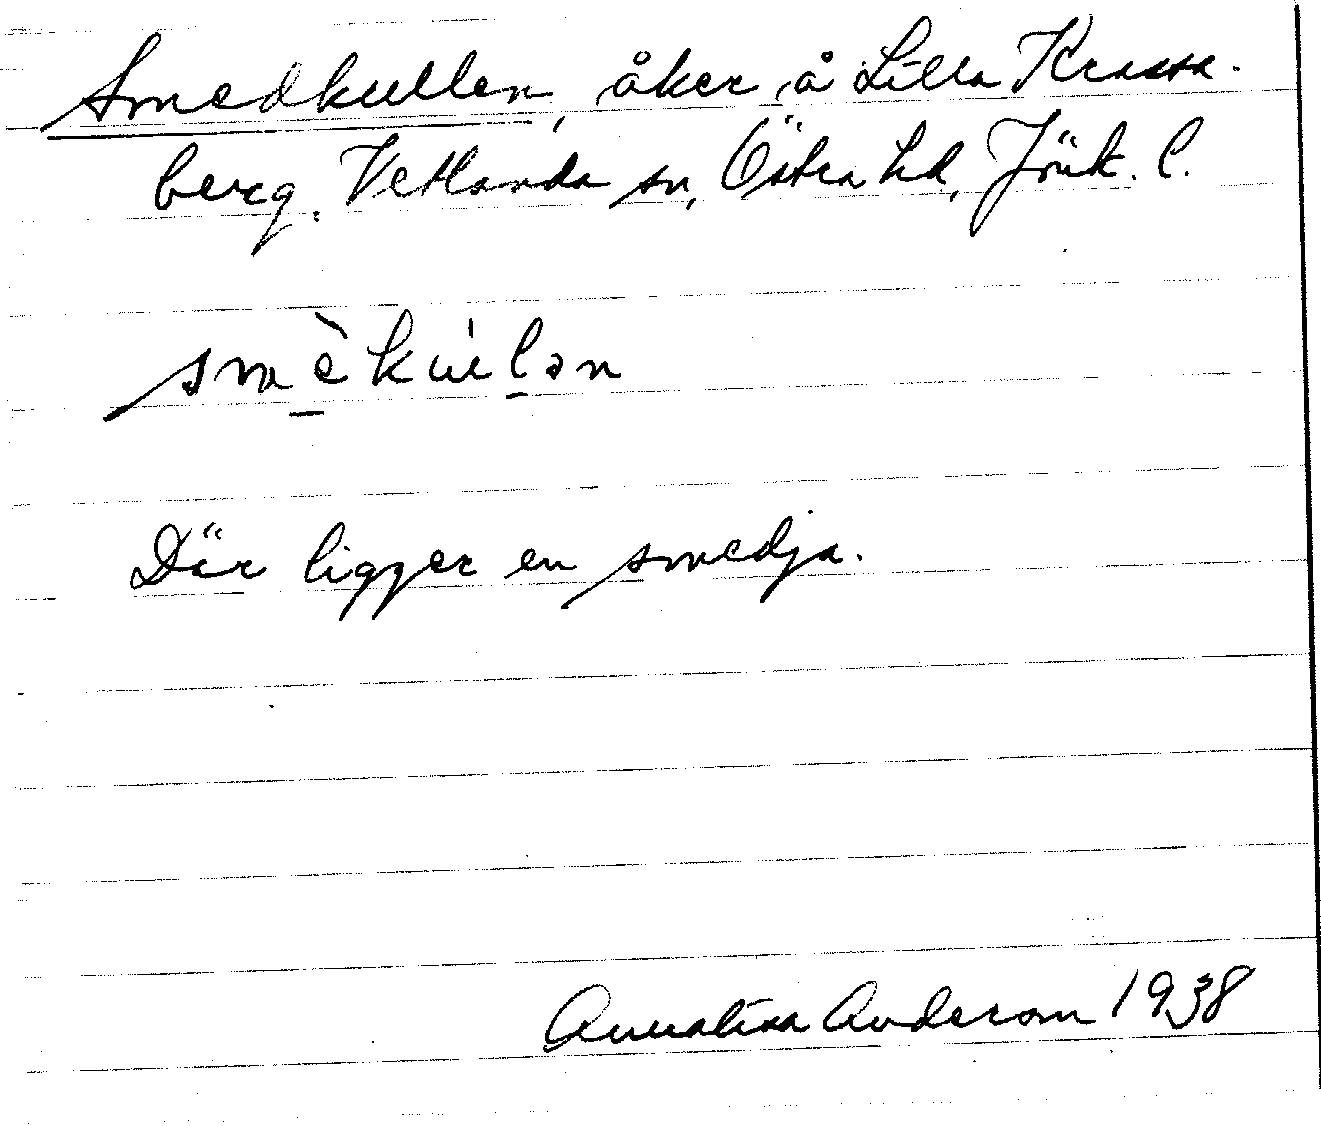 Smedkullen, åker å Lilla Krassa-
berg, Vetlanda sn, Östra hd, Jönk. l.
smèkúelən
Där ligger en smedja.
Annalisa Anderson 1938